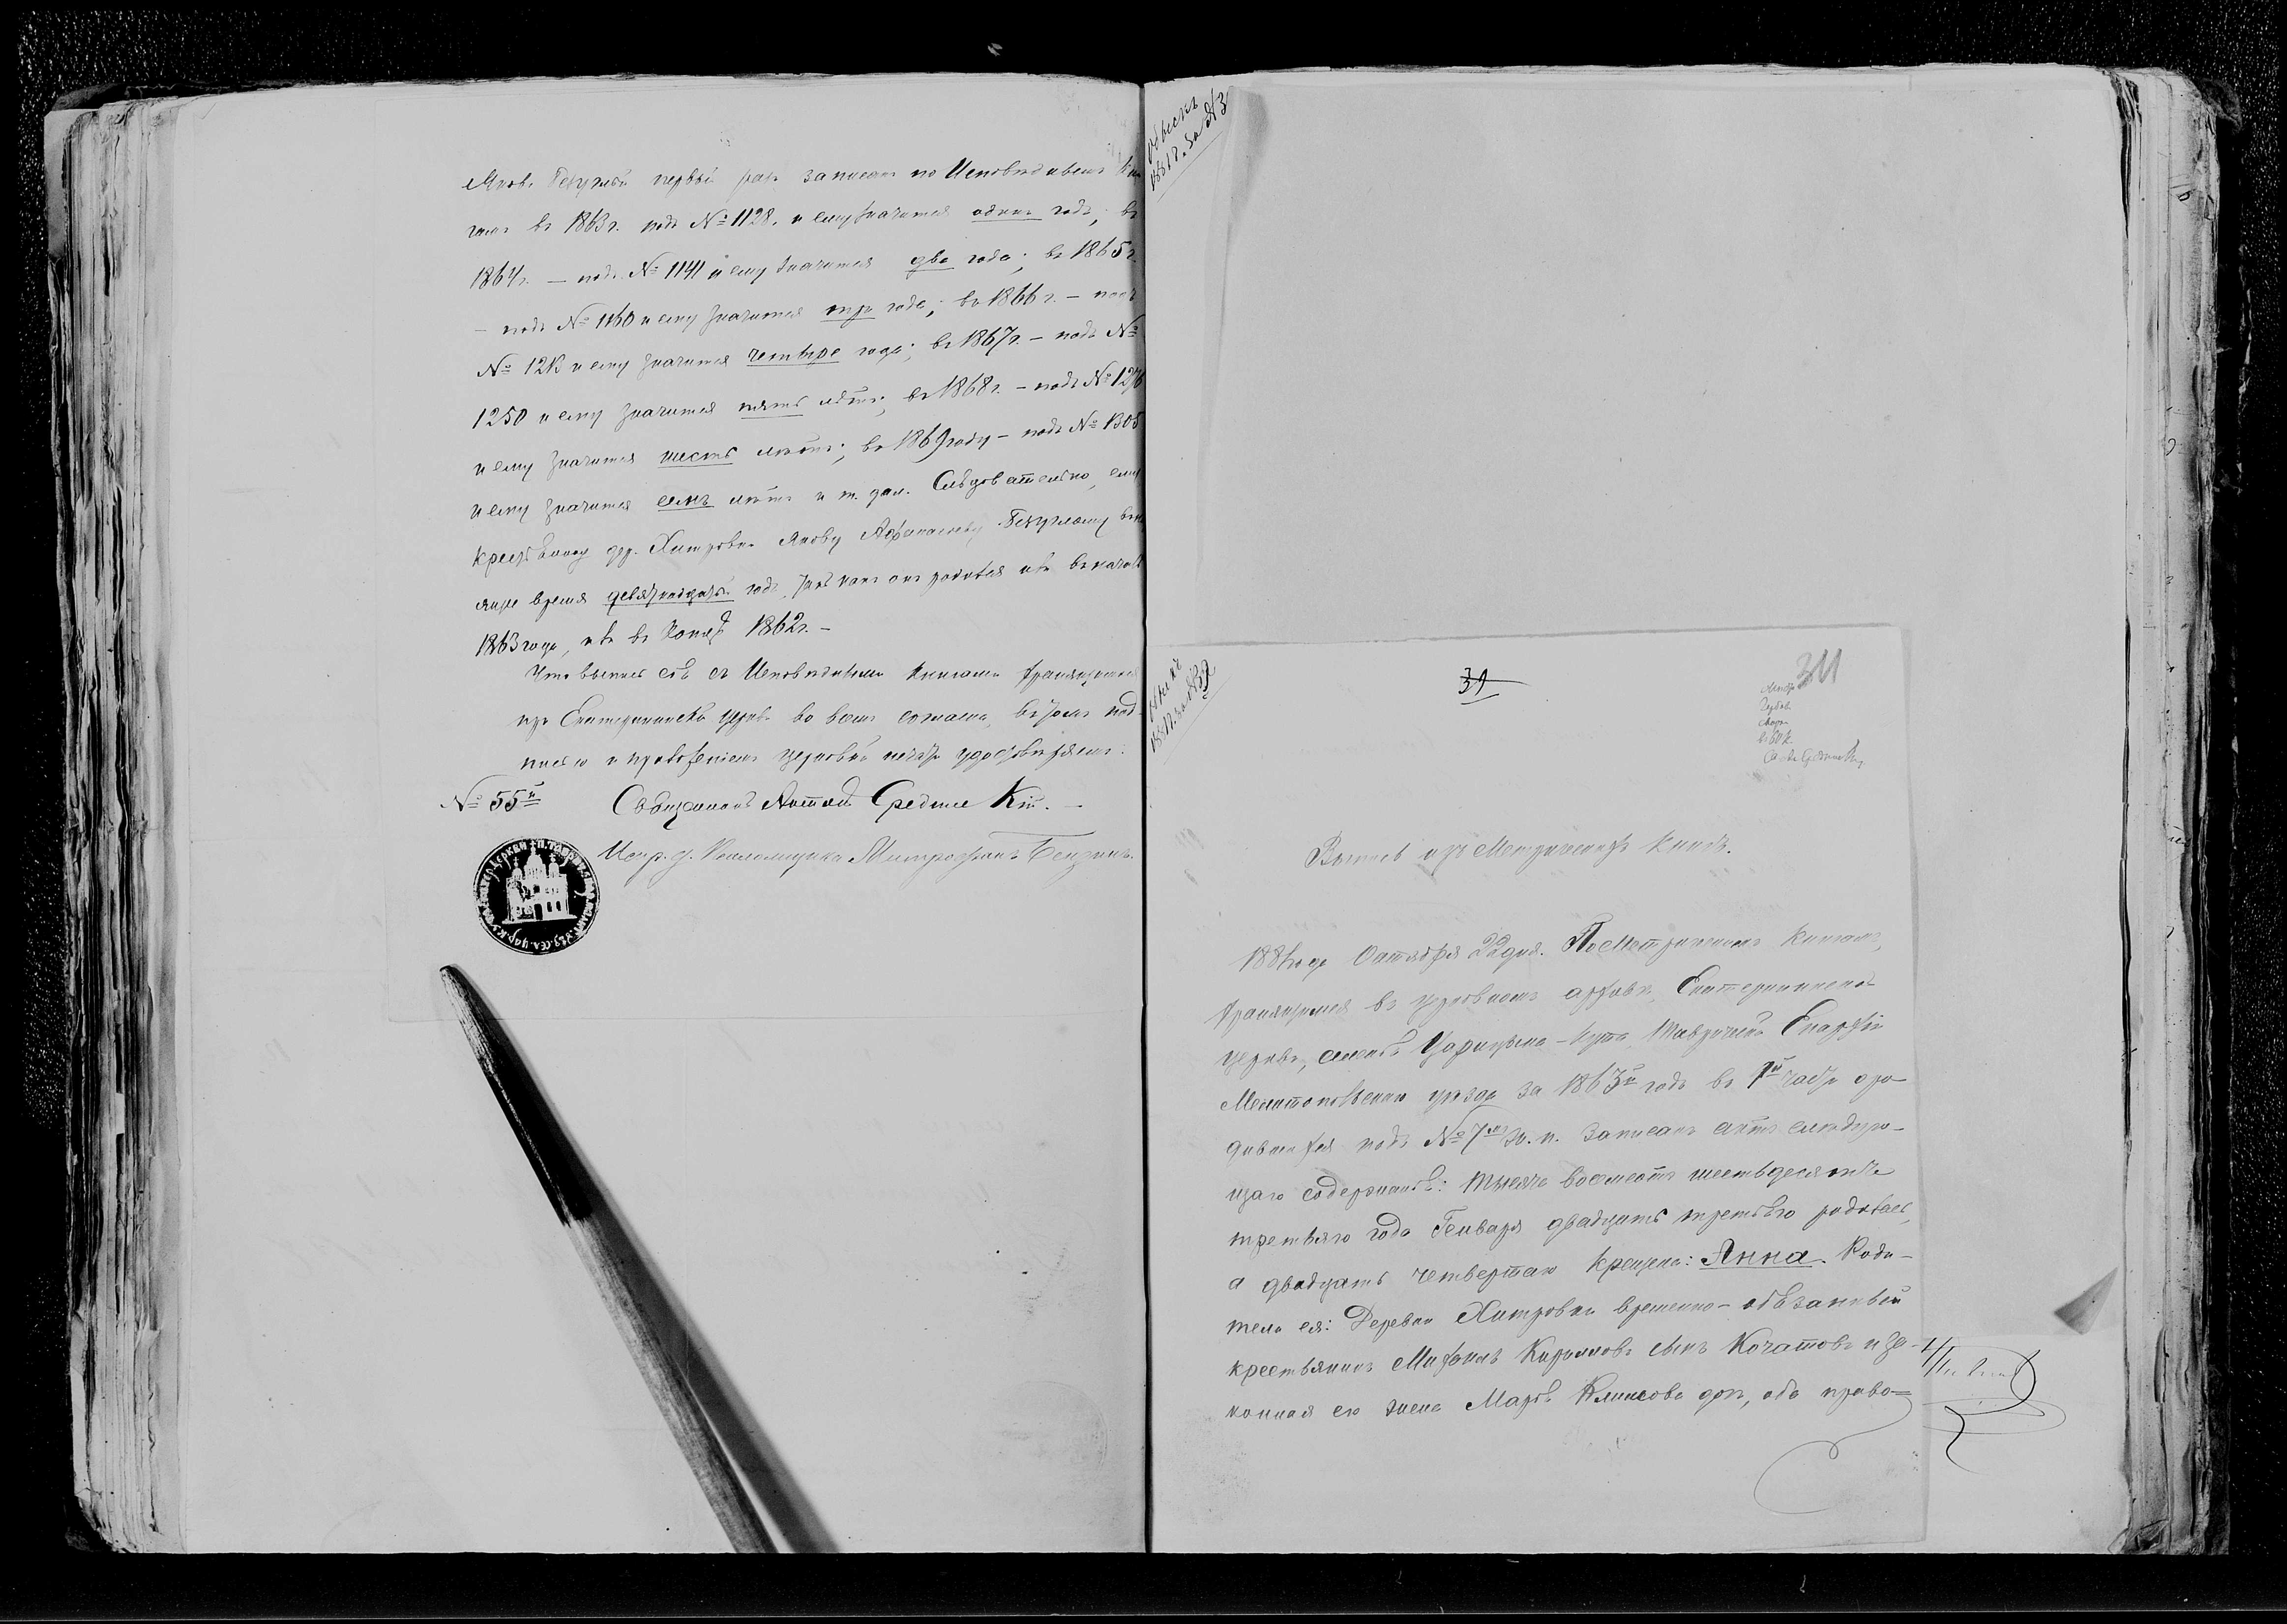 Яковъ Бекучный первый разъ записанъ по Исповѣднымъ Кни
гамъ въ 1863 г. подъ № 1128, и ему значится одинъ годъ; въ
1864 г. — подъ № 1141 и ему значится два года; въ 1865 г.
— подъ № 1160 и ему значится три года; въ 1866 г. — подъ
№ 1213 и ему значится четыре года; въ 1867 г. — подъ №
1250 и ему значится пять лѣтъ; въ 1868 г. — подъ № 1276
и ему значится шесть лѣтъ; въ 1869 году — подъ № 1305
и ему значится семь лѣтъ и т. дал. Слѣдовательно, ему
крестьянину дер. Хитровки Якову Афанасіеву въ на
щее время девятнадцать годъ, такъ какъ онъ родился не въ началѣ
1863 года, а въ концѣ 1862 г. —
Что выпись сія съ Исповѣдными книгами хранящимися
при Екатерининской церкви во всемъ согласна, въ томъ под-
писью и приложеніемъ церковной печати удостовѣряемъ:
№ 55й
Священникъ
Испр. д. Псаломщика Митрофанъ
Объяснъ
1881 г. за № 3
1881 г. за № 32
31
311
Выпись изъ Метрическихъ Книгъ.
1881 года Октября 22 дня. По Метрическимъ Книгамъ,
хранящимся въ церковномъ архивѣ, Екатерининской
церкви, селенія Царицына-Кута, Таврической Епархіи
Мелитопольскаго уѣзда за 1863й годъ въ 1й части о ро-
дившихся подъ № 7мъ ж. п. записанъ актъ слѣдую-
щаго содержанія: Тысяча восемьсотъ шестьдесятъ
третьяго года Генваря двадцать третьяго родилась,
а двадцать четвертаго крещена: Анна. Роди-
тели ея: Деревни Хитровки временно-обязанный
крестьянинъ Михаилъ Кирилловъ сынъ Кочатовъ и за-
конная его жена Марія Климова дочь, оба право=